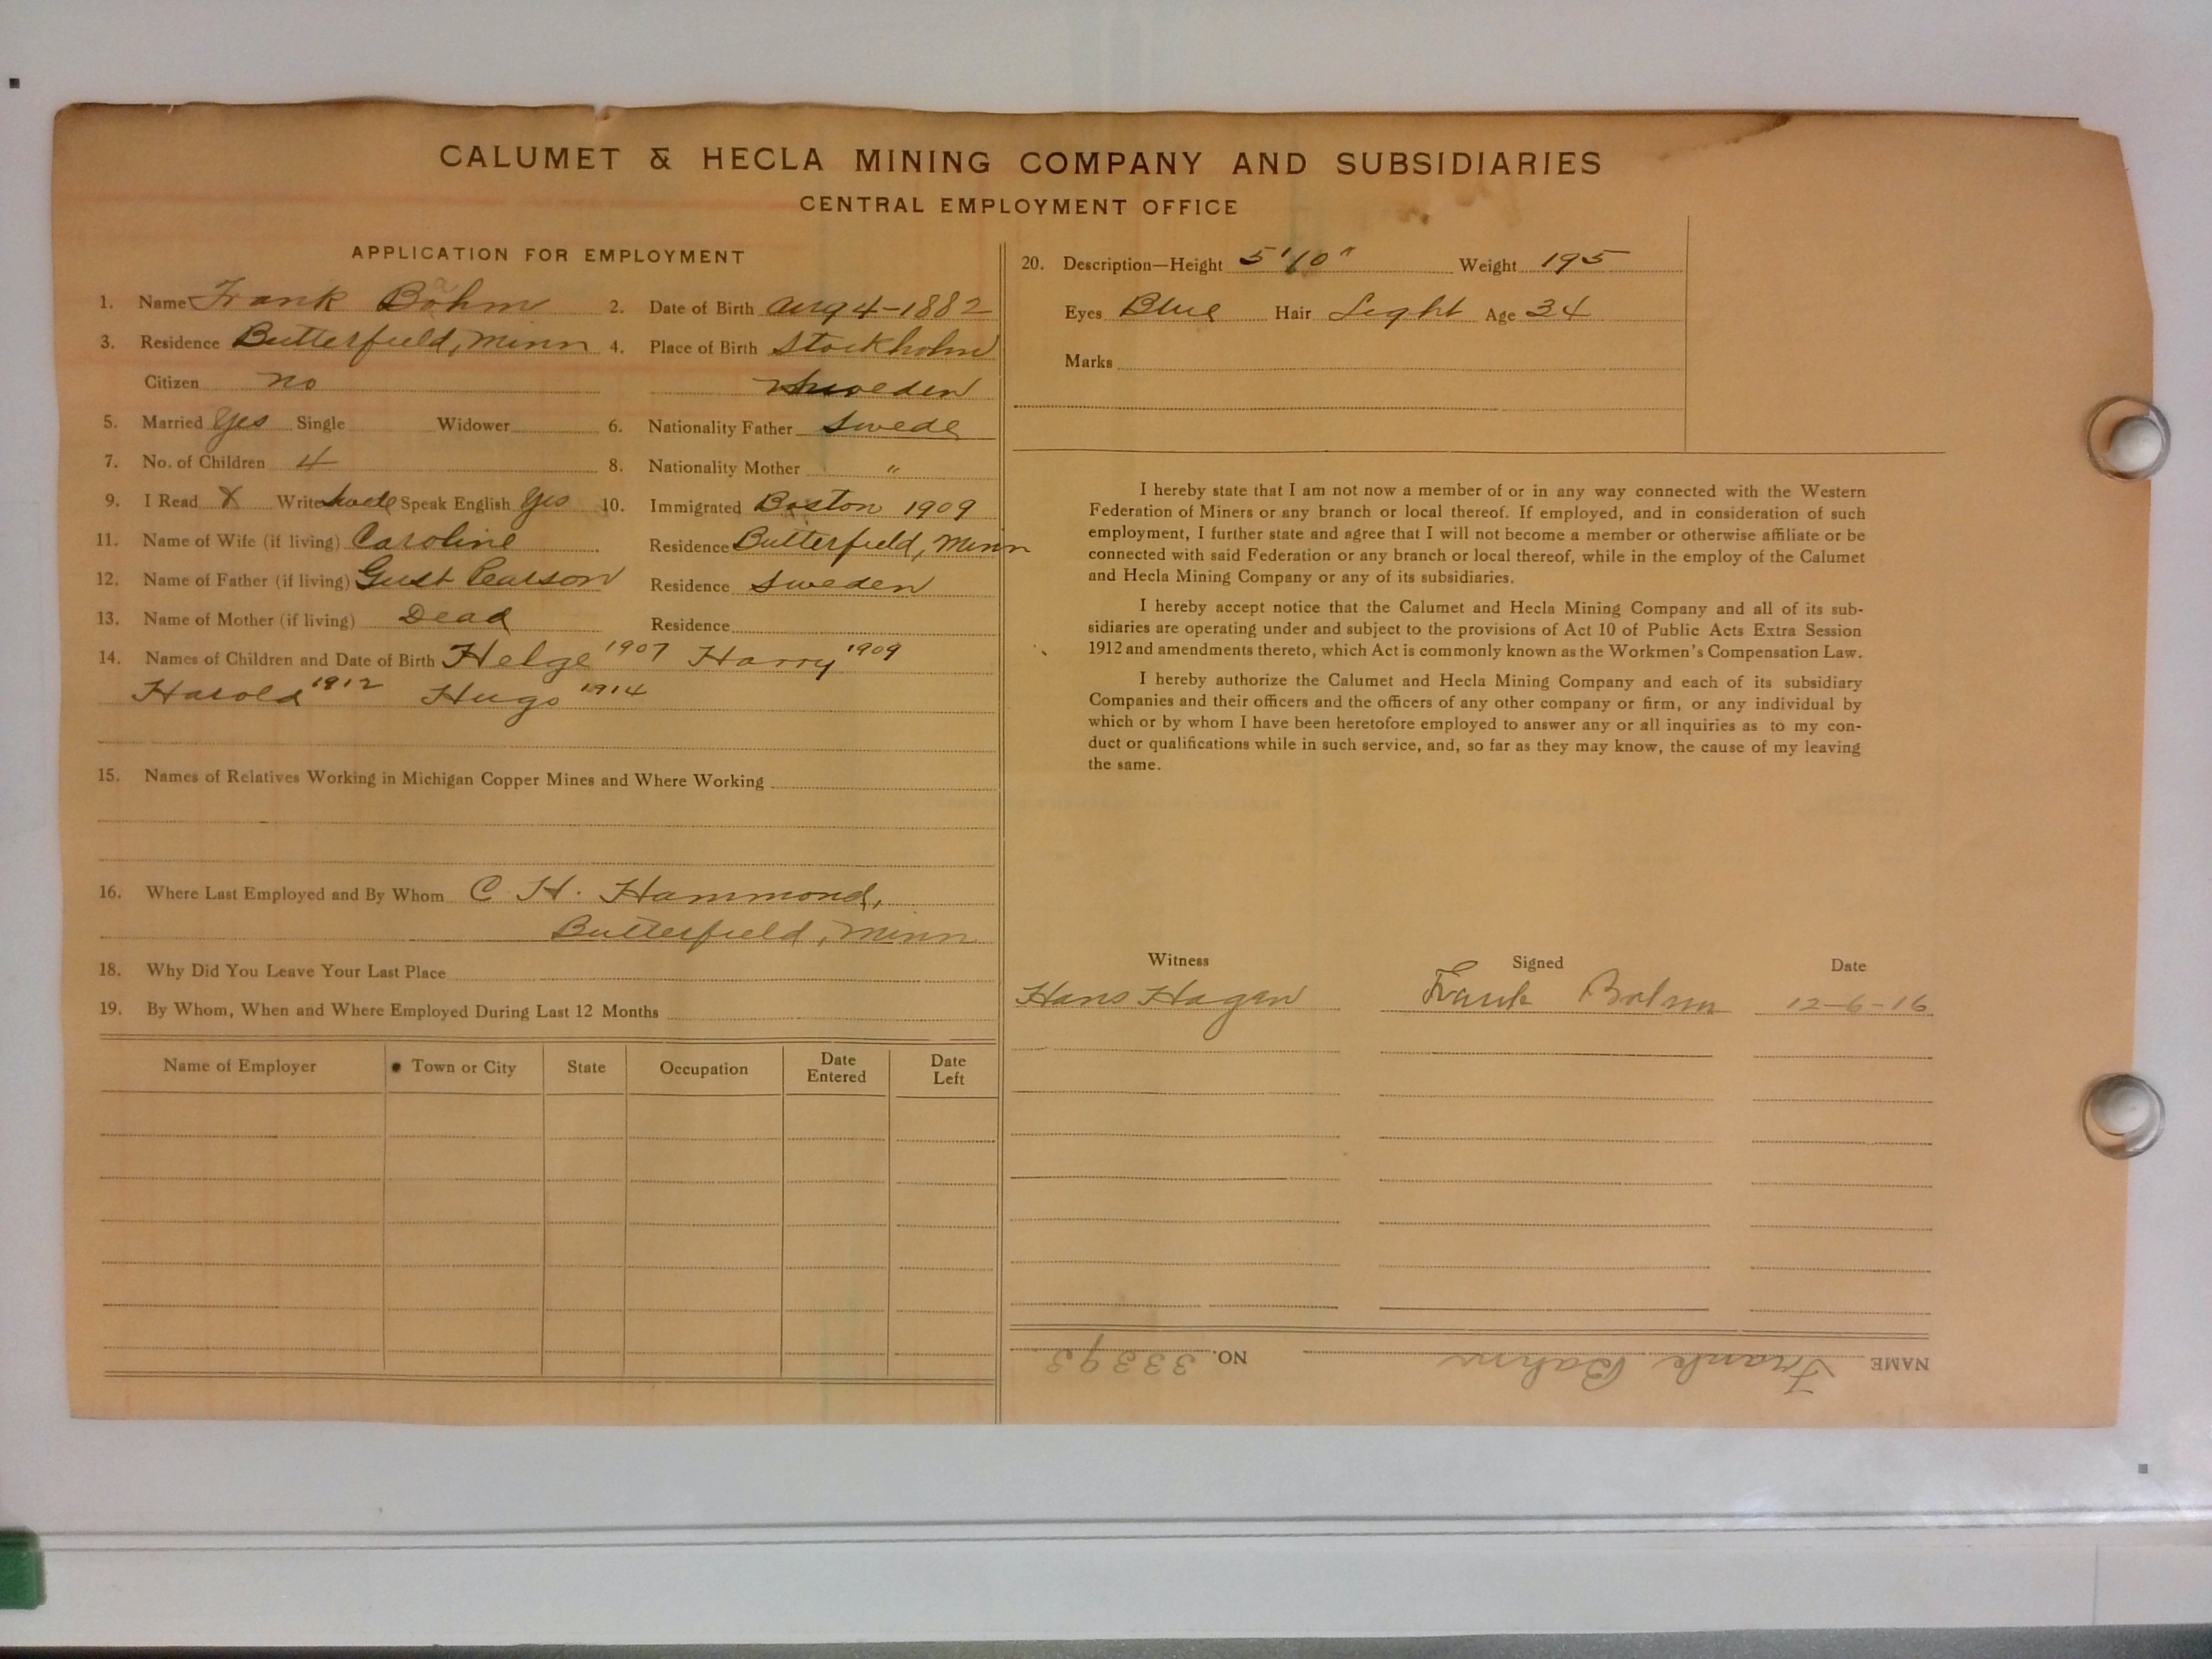 CALUMET & HECLA MINING COMPANY AND SUBSIDIARIES
CENTRAL EMPLOYMENT OFFICE
APPLICATION FOR EMPLOYMENT
1. Name Frank Bohm 2. Date of Birth Aug 4-1882
3. Residence Butterfield, Minn 4. Place of Birth Stockholm
Citizen no Sweden
5. Married Yes Single Widower 6. Nationality Father Swede
7. No. of Children 4 8. Nationality Mother "
9. I Read X Write Swede Speak English Yes 10. Immigrated Boston 1909
11. Name of Wife (if living) Caroline Residence Butterfield, Minn
12. Name of Father (if living) Gust Pearson Residence Sweden
13. Name of Mother (if living) Dead Residence
14. Names of Children and Date of Birth Helge 1907 Harry 1909
Harold 1912 Hugo 1914
15. Names of Relatives Working in Michigan Copper Mines and Where Working
16. Where Last Employed and By Whom C H. Hammond,
Butterfield, Minn
18. Why Did You Leave Your Last Place
19. By Whom, When and Where Employed During Last 12 Months
Name of Employer Town or City State Occupation Date Entered Date Left
20. Description—Height 5'10" Weight 195
Eyes Blue Hair Light Age 34
Marks
I hereby state that I am not now a member of or in any way connected with the Western
Federation of Miners or any branch or local thereof. If employed, and in consideration of such
employment, I further state and agree that I will not become a member or otherwise affiliate or be
connected with said Federation or any branch or local thereof, while in the employ of the Calumet
and Hecla Mining Company or any of its subsidiaries.
I hereby accept notice that the Calumet and Hecla Mining Company and all of its sub-
sidiaries are operating under and subject to the provisions of Act 10 of Public Acts Extra Session
1912 and amendments thereto, which Act is commonly known as the Workmen's Compensation Law.
I hereby authorize the Calumet and Hecla Mining Company and each of its subsidiary
Companies and their officers and the officers of any other company or firm, or any individual by
which or by whom I have been heretofore employed to answer any or all inquiries as to my con-
duct or qualifications while in such service, and, so far as they may know, the cause of my leaving
the same.
Witness Signed Date
Hans Hagan Frank Bohm 12-6-16
NAME Frank Bahm NO. 33393